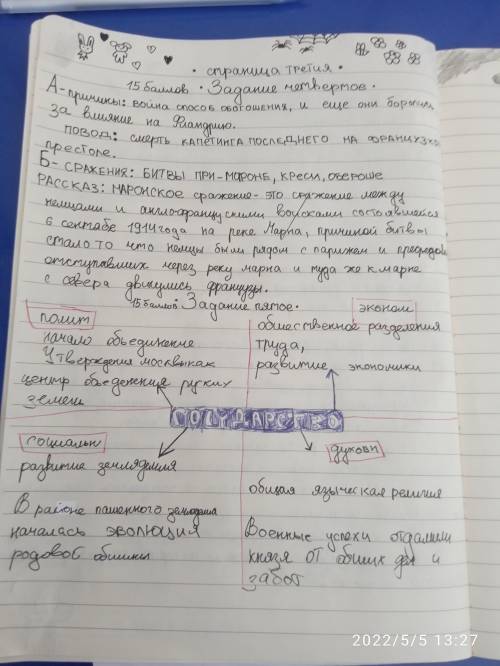 • страница третия •
15 баллов • Задание четвертое •
А- причины: война способ обогощения, и еще они боролись
за влияние на Фландрию.
повод: смерть Капетинга последнего на французско
престоле.
Б- сражения: битвы при-Мароне, Креси,
рассказ: Маронское сражение- это сражение между
немцами и англо-французскими войсками состоявшейся
6 сентебре 1914 года на реке Марна, причиной битвы
стало то что немцы были рядом с парижем и преследов
отступавших через реку марна и туда же к марне
с севера двинулись французы.
15 баллов • Задание пятое •
полит
начало объединение
Утверждения москвы как
центр объеденения руских
земель
эконом
общественное разделения
труда,
развитие экономики
государство
социальн
развитие земледелия
В районе пашенного земледелия
началась эволюция
родовоб общины
духовн
общая языческая религия
Военные успехи отдалили
князя от общих дел и
забот
2022/5/5 13:27